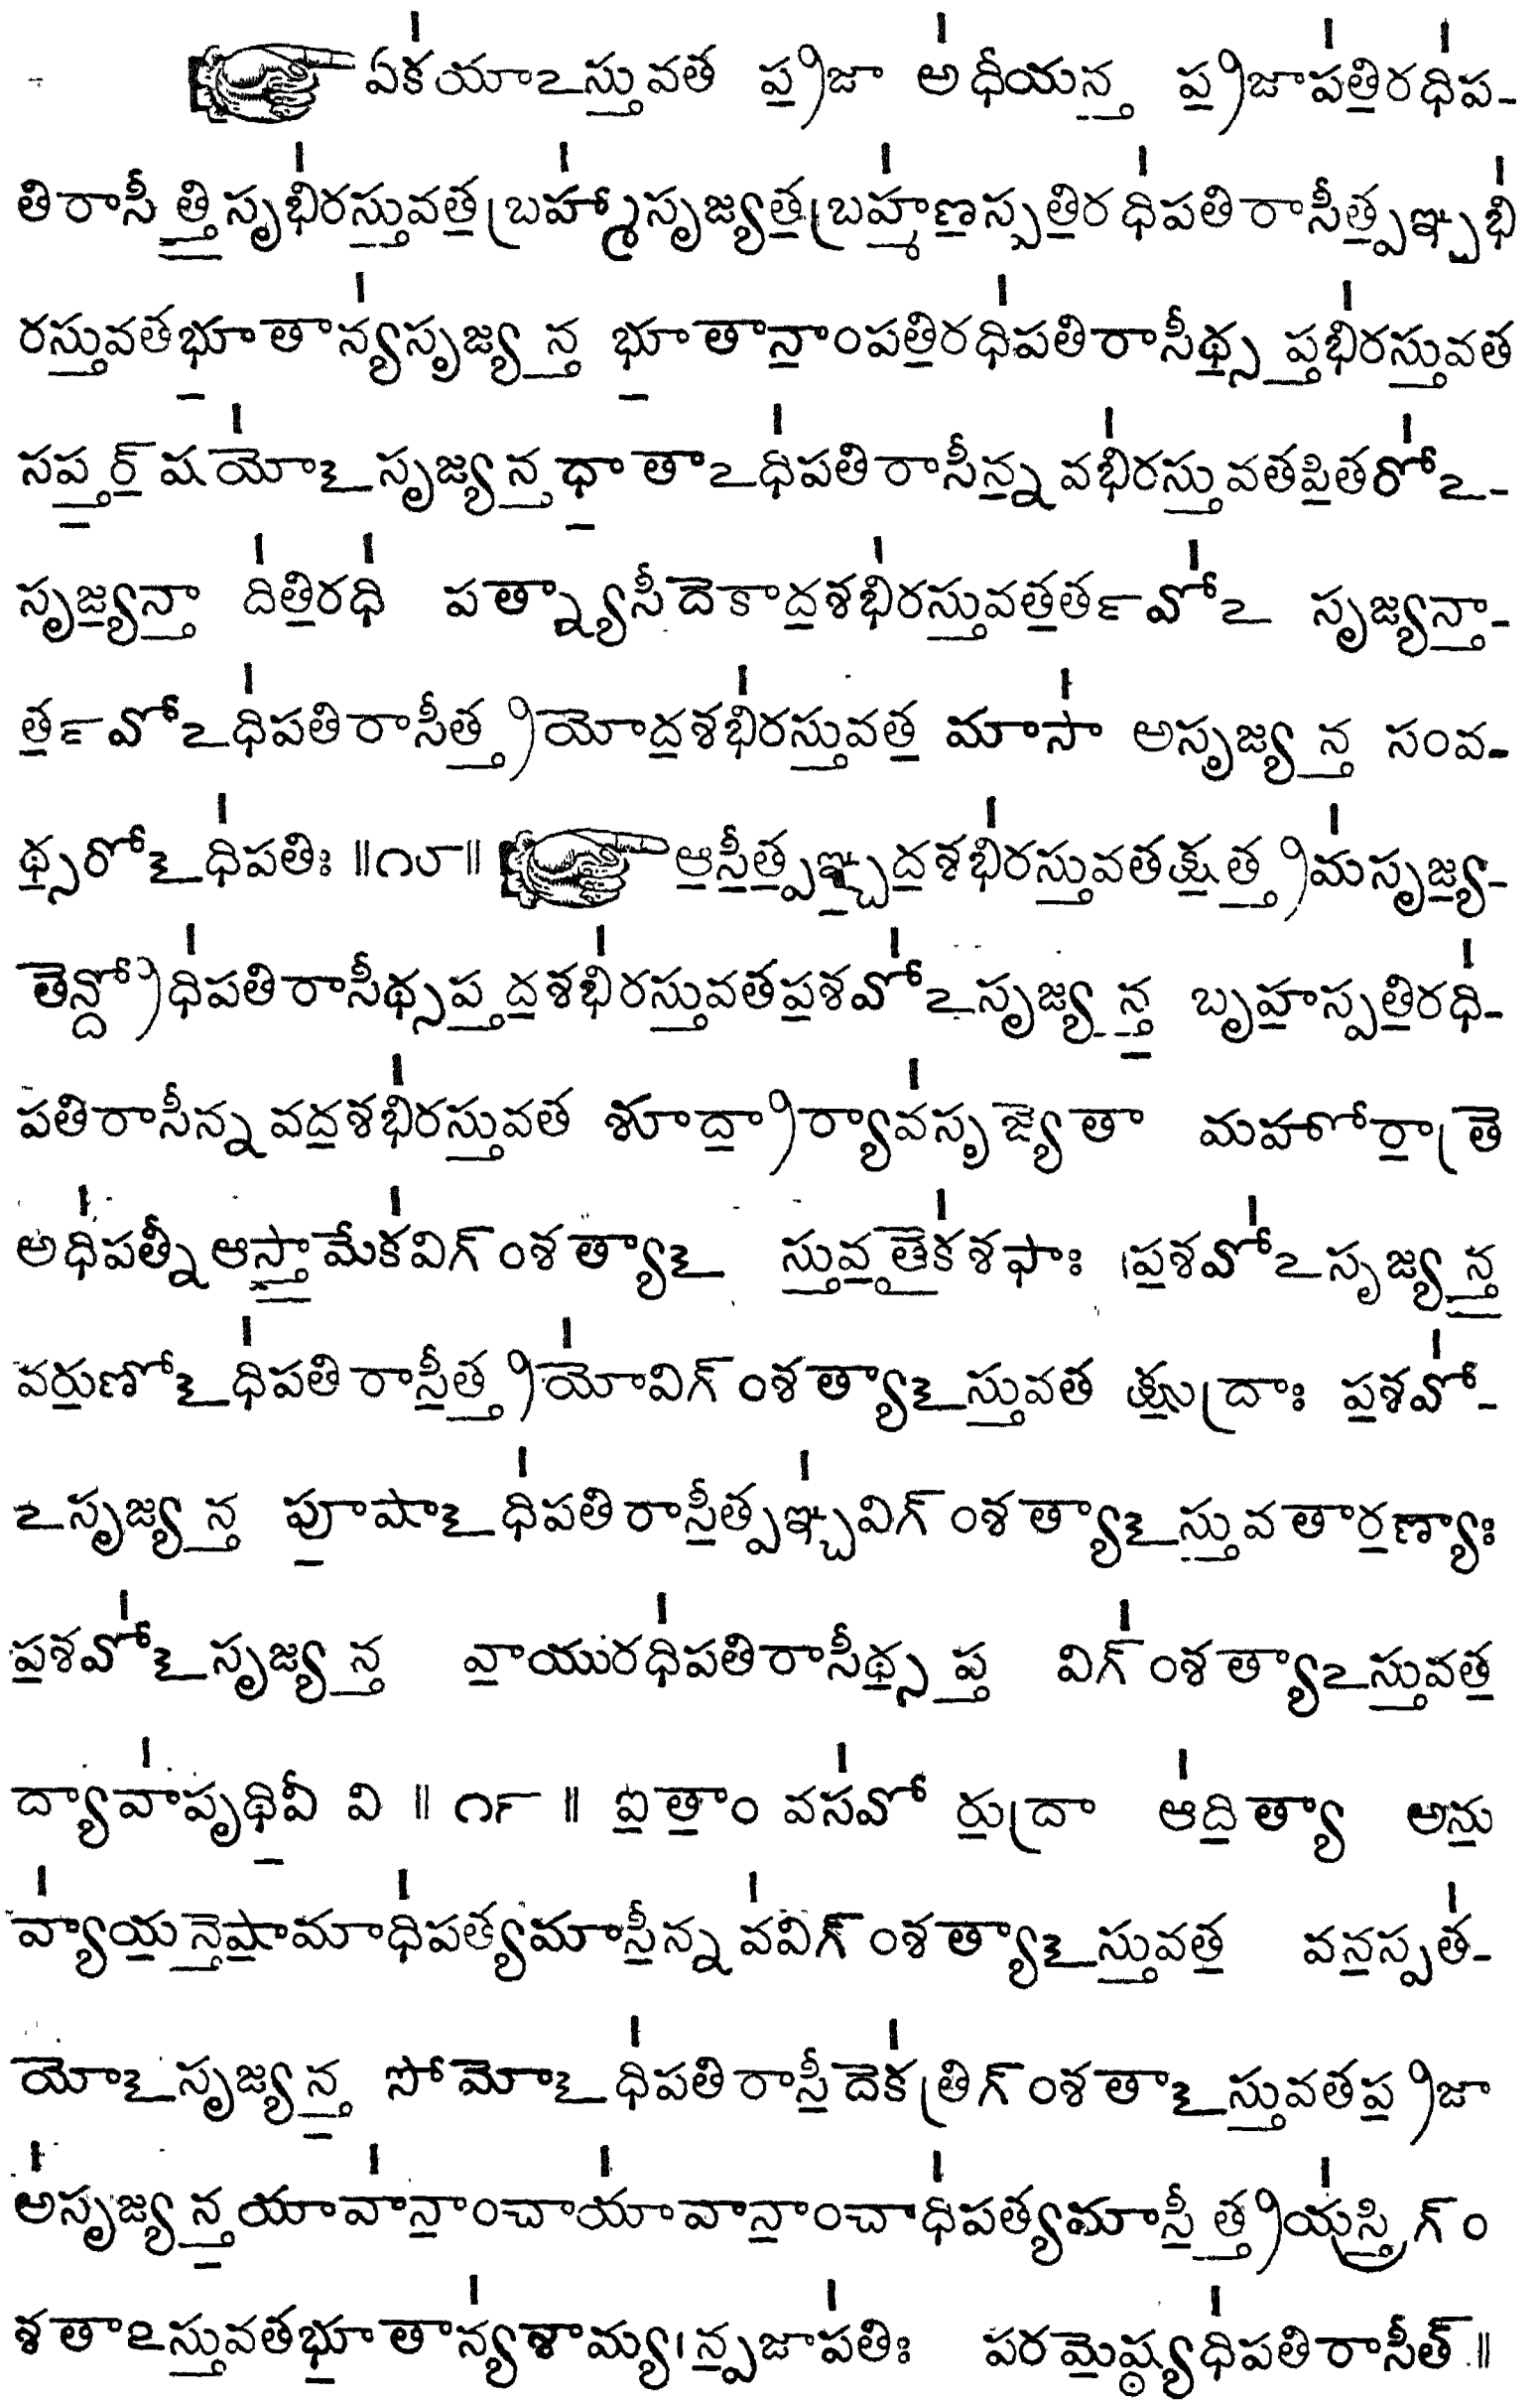 ఏకయాఽస్తువత ప్రజా అధీయన్త ప్రజాపతిరధిప-
తిరాసీత్తిసృభిరస్తువత బ్రహ్మాసృజ్యత బ్రహ్మణస్పతిరధిపతిరాసీత్పఞ్చభి
రస్తువతభూతాన్యసృజ్యన్త భూతానాంపతిరధిపతిరాసీథ్సప్తభిరస్తువత
సప్తర్‌షయోఽసృజ్యన్తధాతాఽధిపతిరాసీన్నవభిరస్తువతపితరోఽ-
సృజ్యన్తా దితిరధి పత్న్యాసీదెకాదశభిరస్తువతతర్వోఽ సృజ్యన్తా-
తర్వోఽధిపతిరాసీత్త్రయోదశభిరస్తువత మాసా అసృజ్యన్త సంవ-
థ్సరోఽధిపతిః ॥౧౮॥ ఆసీత్పఞ్చదశభిరస్తువతక్షత్త్రమసృజ్య-
తెన్ద్రోధిపతిరాసీథ్సప్తదశభిరస్తువతపశవోఽసృజ్యన్త బృహస్పతిరధి-
పతిరాసీన్నవదశభిరస్తువత శూద్రార్యావసృజ్యెతా మహోరాత్రె
అధిపత్నీ ఆస్తామేకవిగ్‌ంశత్యాఽ స్తువతైకశఫాః పశవోఽసృజ్యన్త
వరుణోఽధిపతిరాసీత్త్రయోవిగ్‌ంశత్యాఽస్తువత క్షుద్రాః పశవో-
ఽసృజ్యన్త పూషాఽధిపతిరాసీత్పఞ్చవిగ్‌ంశత్యాఽస్తువతారణ్యాః
పశవోఽసృజ్యన్త వాయురధిపతిరాసీథ్సప్త విగ్‌ంశత్యాఽస్తువత
ద్యావాపృథివీ వి ॥ ౧౯ ॥ ఐతాం వసవో రుద్రా ఆదిత్యా అను
వ్యాయన్తెషామాధిపత్యమాసీన్నవవిగ్‌ంశత్యాఽస్తువత వనస్పత-
యోఽసృజ్యన్త సోమోఽధిపతిరాసీదెకత్రిగ్‌ంశతాఽస్తువతప్రజా
అసృజ్యన్తయావానాంచాయావానాంచాధిపత్యమాసీత్త్రయస్త్రిగ్‌ం
శతాఽస్తువతభూతాన్యశామ్యన్ప్రజాపతిః పరమెష్ఠ్యధిపతిరాసీత్ ॥